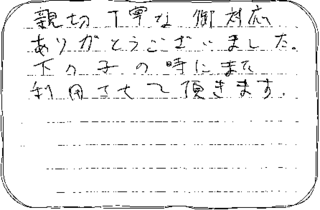 親切丁寧な御対応
ありがとうございました。
下の子の時にまた
利用させて頂きます。